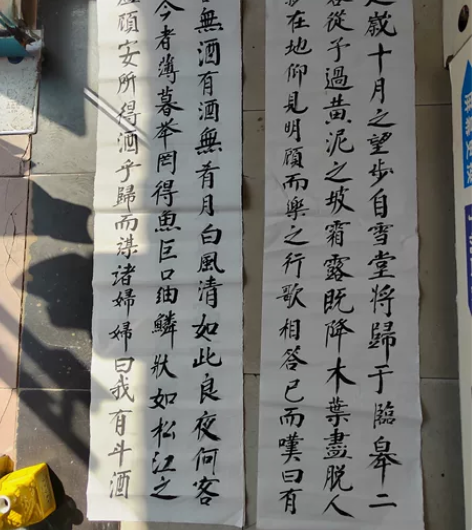 是歲十月之望步自雪堂將歸于臨皋二
客從予過黃泥之坂霜露既降木葉盡脱人
影在地仰見明顧而樂之行歌相答已而嘆曰有
無酒有酒無肴月白風清如此良夜何客
今者薄暮举罔得魚巨口細鱗狀如松江之
顧安所得酒乎歸而謀諸婦婦曰我有斗酒